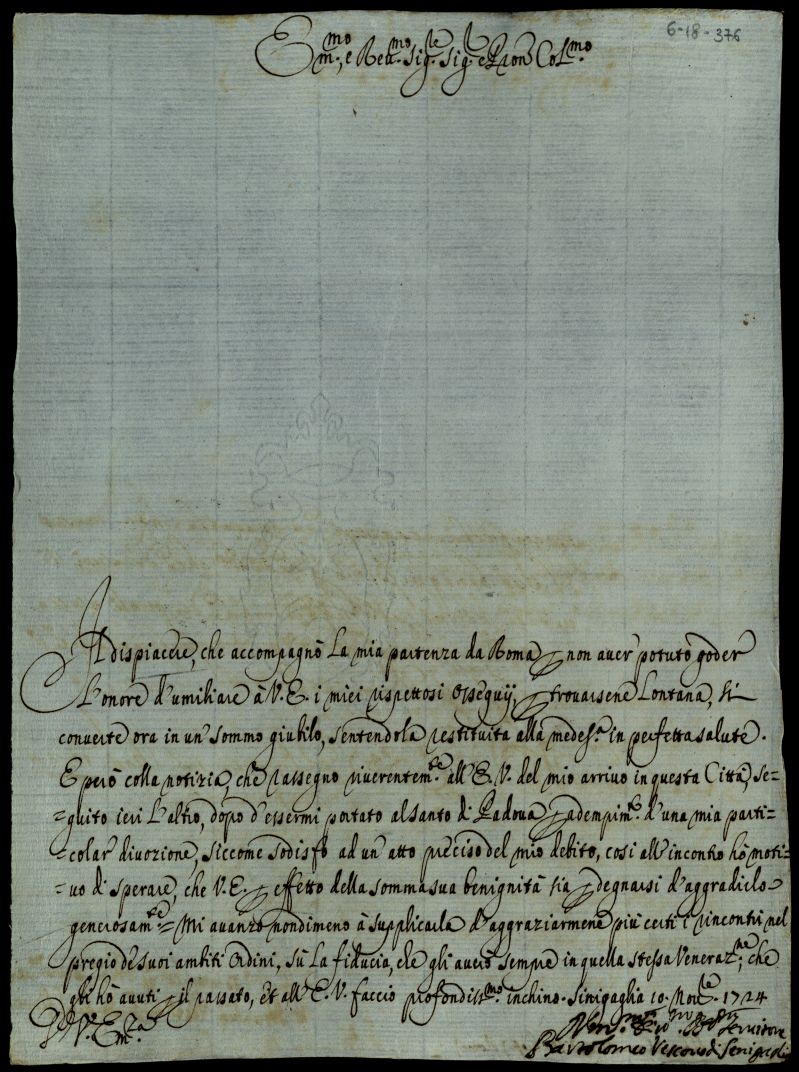 6-18-376
Em.mo e Rev.mo Sig.re Sig.r e Pron Col.mo
Il dispiacere, che accompagnò la mia partenza da Roma p non aver potuto goder
l'onore d'umiliare à V. E. i miei rispettosi ossequij, p trovarsene lontana, si
converte ora in un sommo giubilo, sentendola restituita alla medes.a in perfetta salute.
E però colla notizia, che rassegno riverentem.te all'E. V. del mio arrivo in questa Città, se=
=guito ieri l'altro, dopo d'essermi portato al Santo di Padova p adempim.to d'una mia parti=
=colar divozione, siccome sodisfò ad un'atto preciso del mio debito, così all'incontro hò moti=
=vo di sperare, che V. E. p effetto della somma sua benignità sia p degnarsi d'aggradirlo
generosam.te = Mi avanzo nondimeno à supplicarla d'aggraziarmene più certi i rincontri nel
pregio de suoi ambiti ordini, sù la fiducia, che gli averò sempre in quella stessa Veneraz.ne, che
gli hò avuti p il passato, et all'E. V. faccio profondiss.mo inchino. Sinigaglia 10. Nov.re 1724
D V. Em.za
Servitore
Bartolomeo Vescovo di Senigaglia